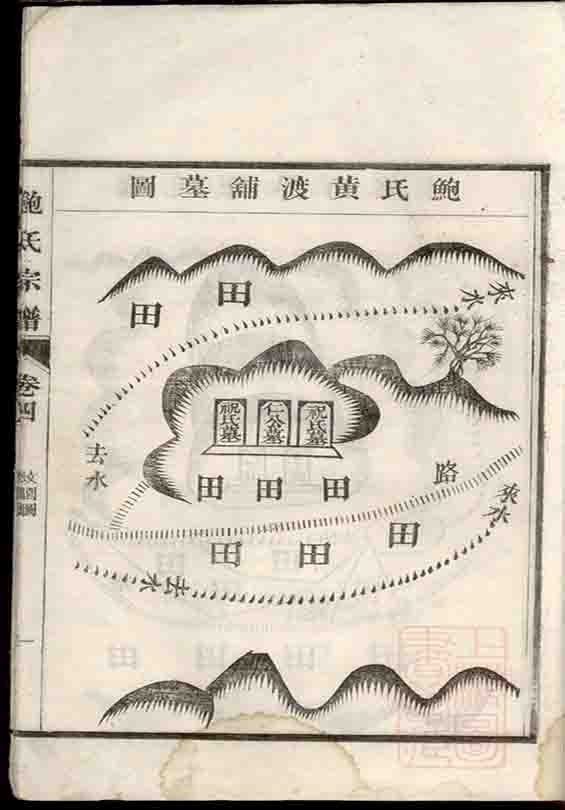 鮑氏黃渡舖墓圖
鮑氏宗譜
卷四
田
田
來水
祝氏墓
仁公墓
祝氏墓
去水
田
田
田
路
來水
田
田
田
去水
一